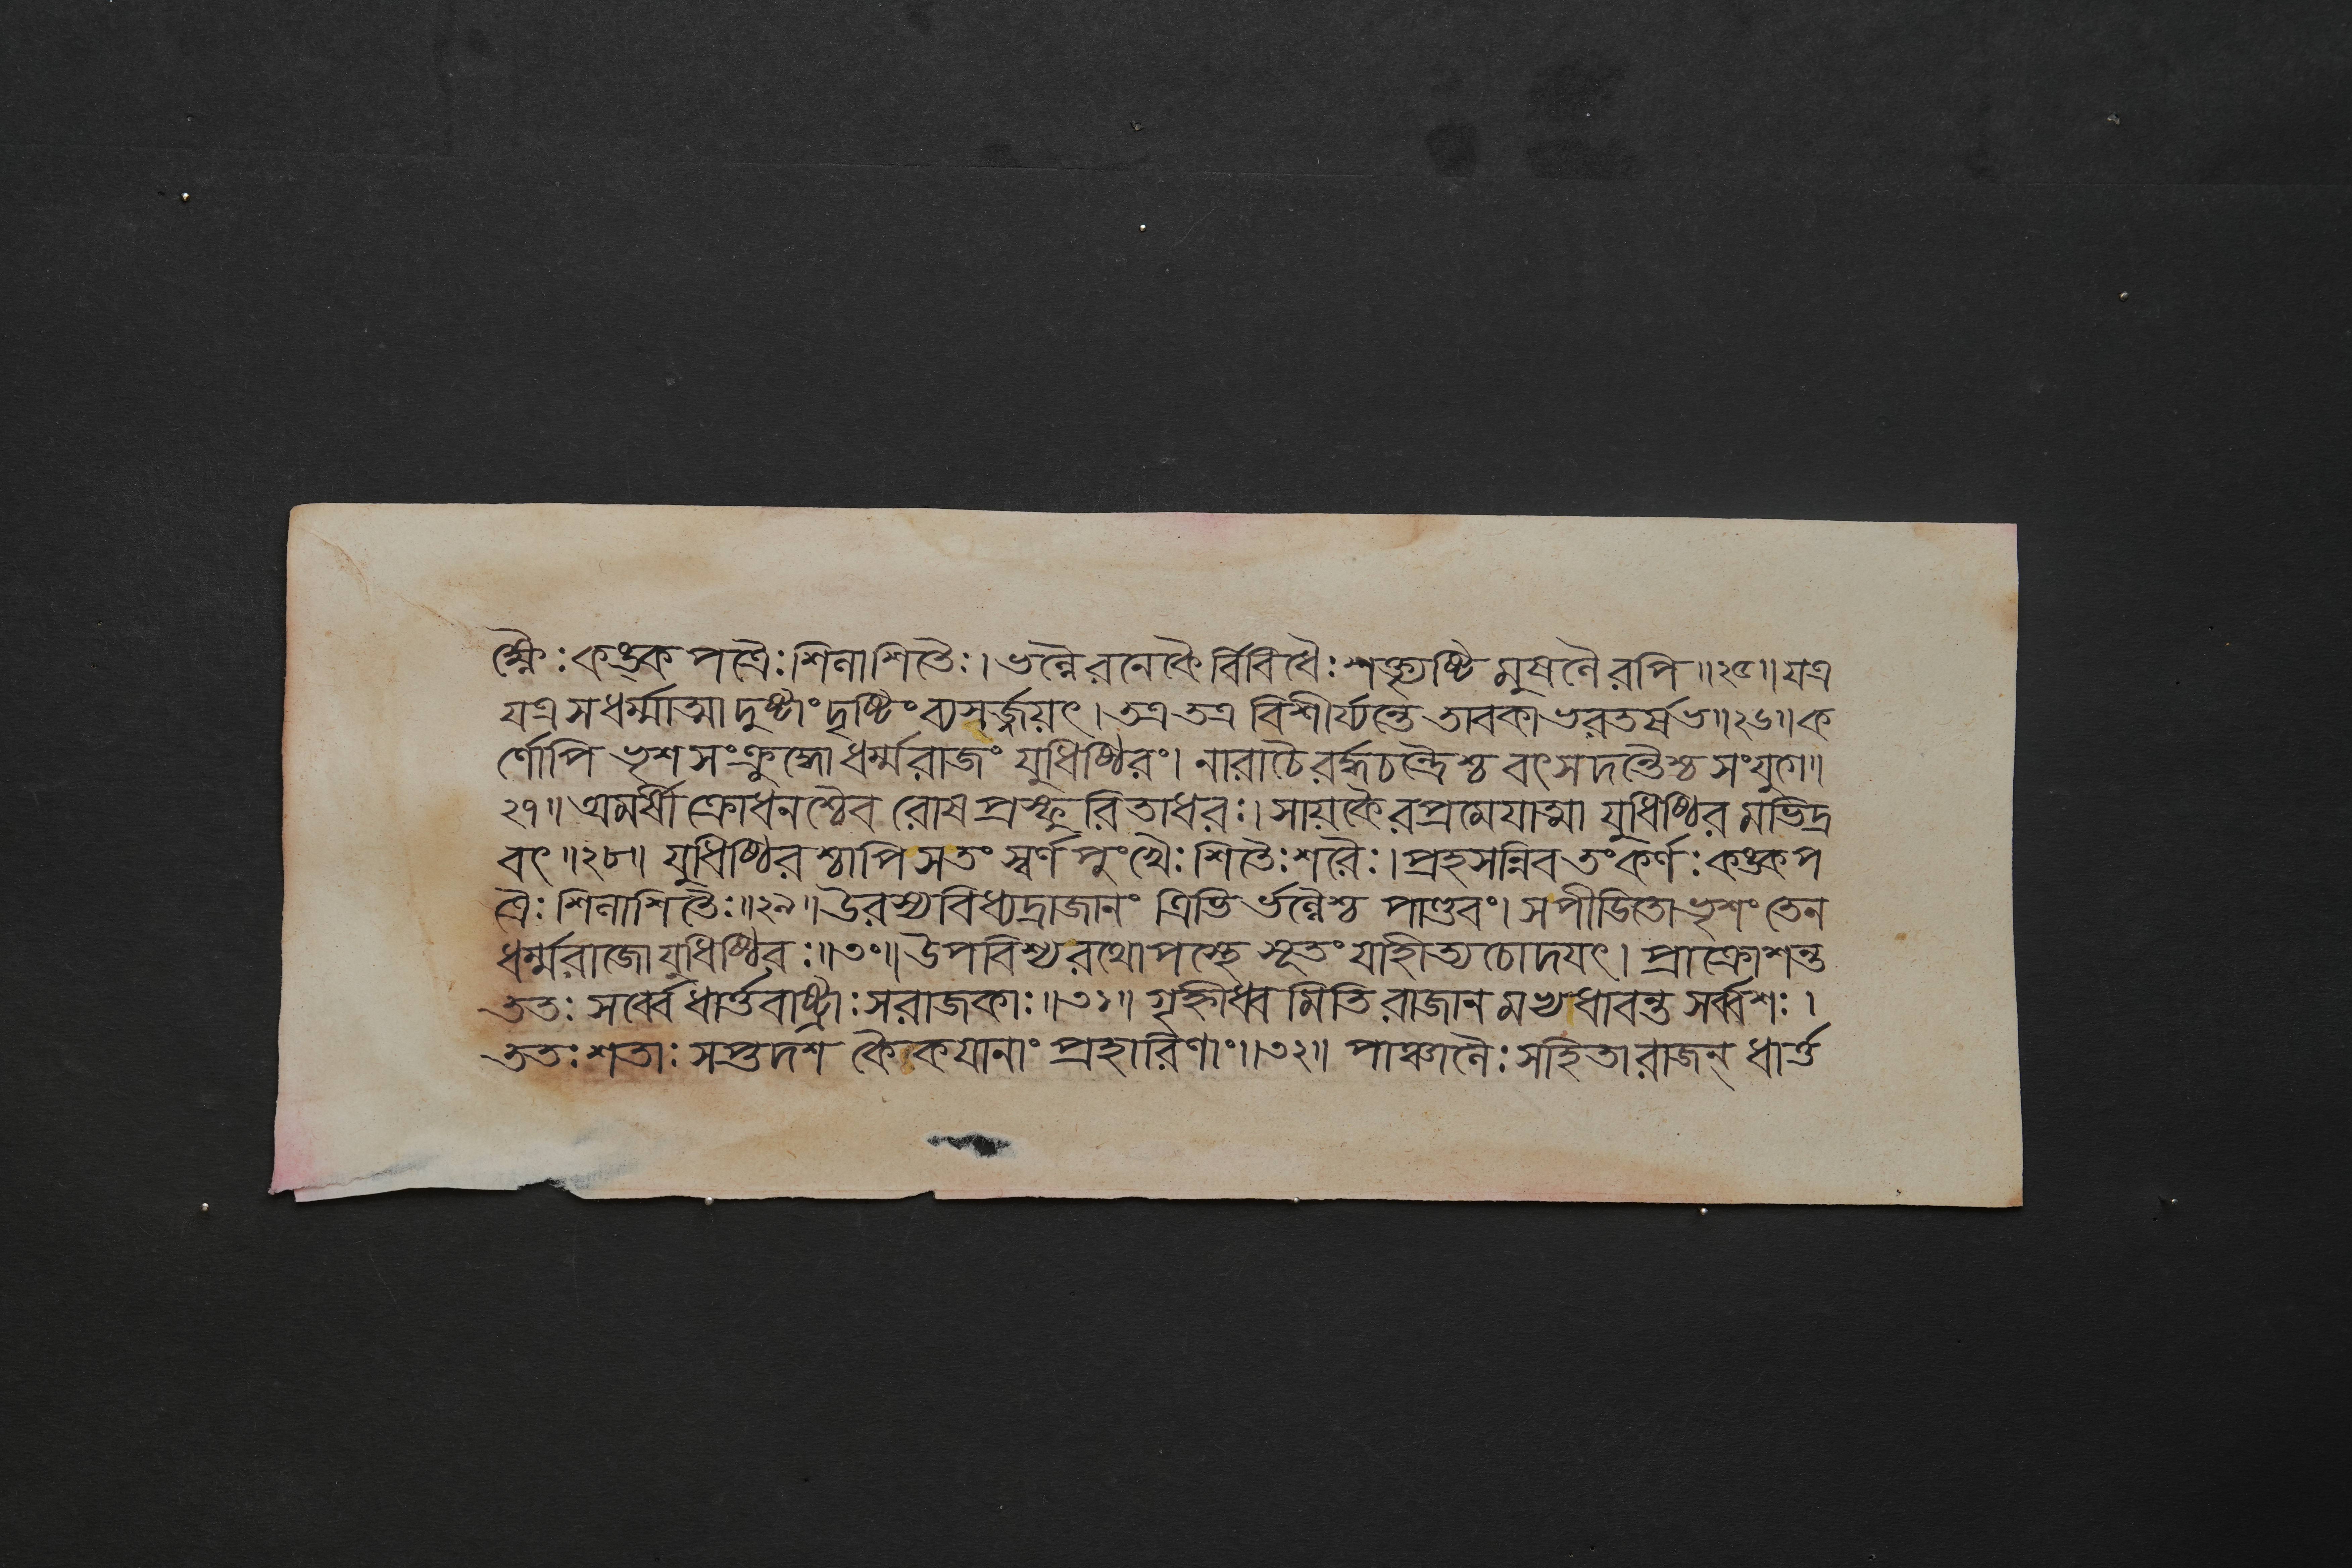 ক্ষ্ণৈঃ কঙ্ক পত্রৈঃ শিলাশিতৈঃ। ভল্লৈরনেকৈর্বিবিধৈঃ শক্ত্যৃষ্টি মুষলৈরপি॥২৫॥ যত্র
যত্র স ধর্ম্মাত্মা দুষ্টাং দৃষ্টিং ব্যসর্জ্জয়ৎ। তত্র তত্র বিশীর্য্যন্তে তাবকা ভরতর্ষভ॥২৬॥ ক
র্ণোপি ভৃশ সংক্রুদ্ধো ধর্ম্মরাজং যুধিষ্ঠিরং। নারাচৈরর্দ্ধচন্দ্রৈশ্চ বৎসদন্তৈশ্চ সংযুগে॥
২৭॥ অমর্ষী ক্রোধনশ্চৈব রোষ প্রস্ফুরিতাধরঃ। সায়কৈরপ্রমেযাত্মা যুধিষ্ঠির মভিদ্র
বৎ॥২৮॥ যুধিষ্ঠির শ্চাপি সতং স্বর্ণ পুংখৈঃ শিতৈঃ শরৈঃ। প্রহসন্নিব তং কর্ণঃ কঙ্কপ
ত্রৈঃ শিলাশিতৈঃ॥২৯॥ উরস্যবিধ্যদ্রাজানং ত্রিভি র্ভল্লৈশ্চ পাণ্ডবং। স পীডিতো ভৃশং তেন
ধর্ম্মরাজো যুধিষ্ঠিরঃ॥৩০॥ উপবিশ্য রথোপস্থে সূতং যাহীত্যচোদযৎ। প্রাক্রোশন্ত
ততঃ সর্ব্বে ধার্ত্তরাষ্ট্রাঃ সরাজকাঃ॥৩১॥ গৃহ্নীধ্ব মিতি রাজান মভ্যধাবন্ত সর্ব্বশঃ।
ততঃ শতাঃ সপ্তদশ কৈকযানাং প্রহারিণাং॥৩২॥ পাঞ্চালৈঃ সহিতা রাজন্ ধার্ত্ত